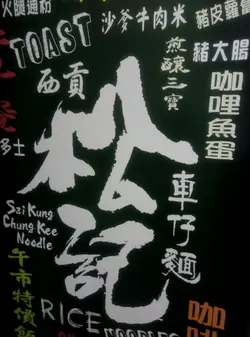 火腿通粉
TOAST
沙爹牛肉米
豬皮蘿蔔
西貢
煎釀三寶
豬大腸
咖哩魚蛋
松記
車仔麵
多士
Szi Kung
Chung Kee
Noodle
午市特價飯
RICE
NOODLES
咖啡